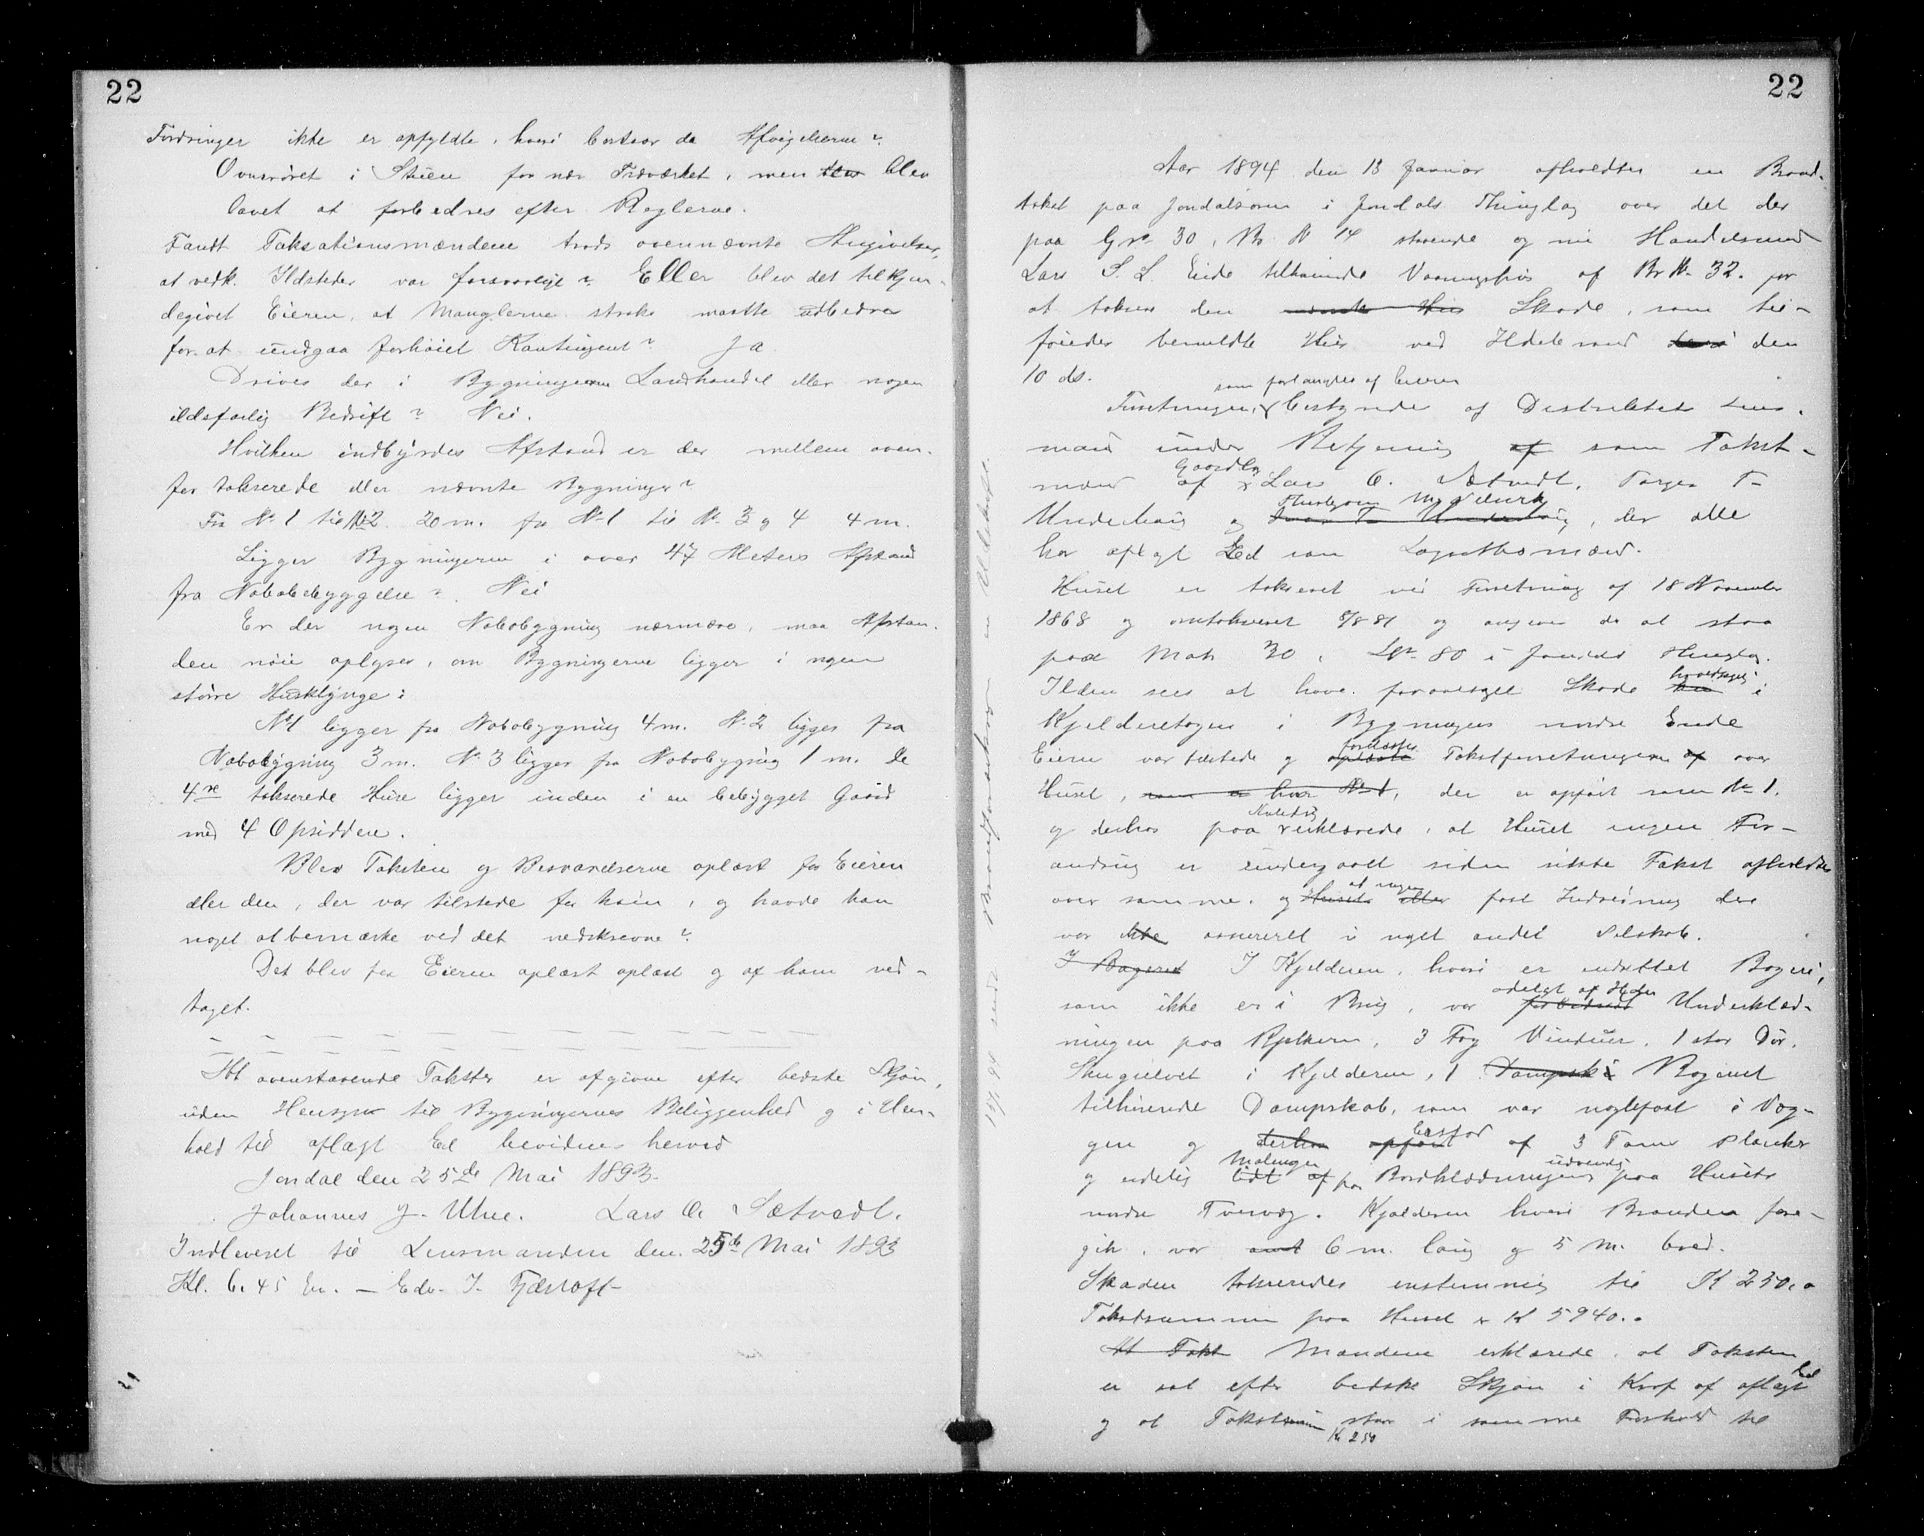 22
Fordringer ikke er opfyldte, hvori bestaar da Afvigelserne?
Ovnsrøret i Stuen for nær Træværket, men blev
lovet at forbedres efter Reglerne.
Fandt Taksationsmændene trods ovennævnte Angivelser,
at vedk. Ildsteder var forsvarlige? Eller blev det tilkjen-
degivet Eieren, at Manglerne straks maatte udbedres
for at undgaa forhøiet Kontingent? Ja
Drives der i Bygningerne Landhandel eller nogen
ildsfarlig Bedrift? Nei.
Hvilken indbyrdes Afstand er der mellem oven-
for takserede eller nævnte Bygninger?
Fra No 1 til No 2 20 m. fra No 1 til No 3 og 4 4 m.
Ligger Bygningerne i over 47 Meters Afstand
fra Nabobebyggelse? Nei
Er der nogen Nabobygning nærmere, maa Afstan-
den nøie oplyses, om Bygningerne ligger i nogen
større Husklynge:
No 1 ligger fra Nabobygning 4 m. No 2 ligger fra
Nabobygning 3 m. No 3 ligger fra Nabobygning 1 m. De
4re takserede Huse ligger inden i en bebygget Gaard
med 4 Opsiddere.
Blev Taksten og Besvarelserne oplæst for Eieren
eller den, der var tilstede for ham, og havde han
noget at bemærke ved det nedskrevne?
Det blev for Eieren oplæst oplæst og af ham ved-
taget.
At ovenstaaende Takster er afgivne efter bedste Skjøn,
uden Hensyn til Bygningernes Beliggenhed og i Hen-
hold til aflagt Ed bevidnes herved
Jondal den 25de Mai 1893.
Johannes J. Utne. Lars O. Sætvedt.
Indleveret til Lensmanden den 25de Mai 1893
Kl. 6.45 Em. — Edv. J. Fjærtoft
22
Aar 1894 den 13 Januar afholdtes en Brand-
takst paa Jondalsøren i Jondals Thinglag over det der
paa Gno 30, Br. No 14 staaende og nu Handelsmand
Lars S. L. Eide tilhørende Vaaningshus af Br No 32. for
at taksere den Skade, som til-
føiedes bemeldte Hus ved Ildebrand den
10 ds.
som forlangtes af Eieren
Forretningen bestyrede af Distriktets Lens-
mand under Betjening som Takst-
mænd af Gaardbr Lars O. Sætvedt, Torger T
Underhaug og , der alle
har aflagt Ed som Lagrettesmænd.
Huset er takseret ved Forretning af 18 November
1868 og omtakseret 8/8 81 og angives da at staa
paa Matr 30, Lno 80 i Jondals Thinglag.
Ilden sees at have foraarsaget Skade hovedsagelig i
Kjelderetagen i Bygningens nordre Ende
Eieren var tilstede og forelæstes Takstforretningen over
Huset, , der er opført som No 1.
og derhos paa erklærede, at Huset ingen For-
andring er undergaaet siden sidste Takst afholdtes
over samme, og at ingen fast Indredning der
var assureret i noget andet Selskab.
I Kjelderen, hvori er indrettet Bageri,
som ikke er i Brug, var ødelagt af Heden Underklæd-
ningen paa Bjelkerne, 3 Fag Vinduer, 1 stor Dør,
Skugielvet i Kjelderen, 1 Bageriet
tilhørende Dampskab, som var naglefast i Væg-
gen og af 3 Toms Planker
og endelig Malingen paa Bordklædningens udvendig paa Husets
nordre Tvervæg. Kjelderen hvori Branden fore-
gik, var 6 m. lang og 5 m. bred.
Skaden takseredes enstemmig til K 250.0
Takstsummen paa Huset er K 5940.0
Mændene erklærede, at Taksten
er sat efter bedste Skjøn i Kraft af aflagt Ed
og at Takstsum Kr 250 staar i samme Forhold til
15/1 94 sendt Brandforsikring en Udskrift.